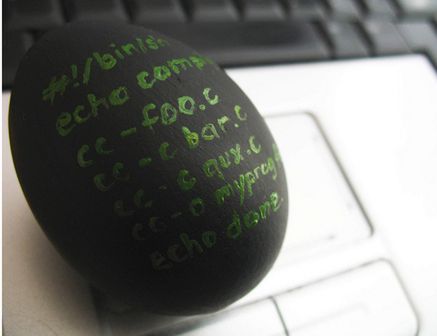 #!/bin/sh
echo comp
cc -foo.c
cc -c bar.c
cc -c qux.c
cc -o myprog
echo done